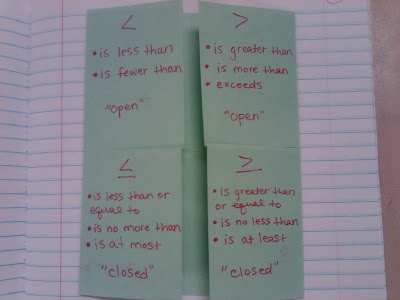 <
• is less than
• is fewer than
"open"
>
• is greater than
• is more than
• exceeds
"open"
≤
• is less than or
equal to
• is no more than
• is at most
"closed"
≥
• is greater than
or equal to
• is no less than
• is at least
"closed"